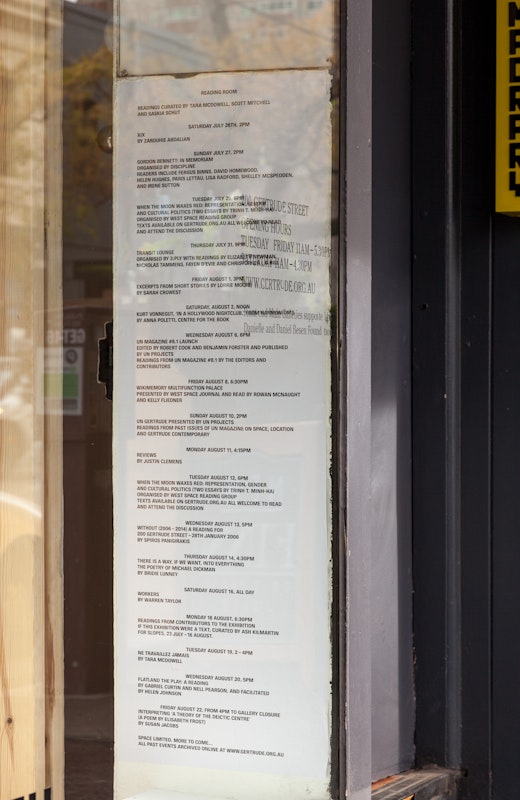 READING ROOM
READINGS CURATED BY TARA MCDOWELL, SCOTT MITCHELL
AND SASKIA SCHUT
SATURDAY JULY 26TH, 2PM
XIX
BY ZABDUHIE ABDALIAN
SUNDAY JULY 27, 2PM
GORDON BENNETT: IN MEMORIAM
ORGANISED BY DISCIPLINE
READERS INCLUDE FERGUS BINNS, DAVID HOMEWOOD,
HELEN HUGHES, PARIS LETTAU, LISA RADFORD, SHELLEY MCSPEDDEN,
AND IRENE SUTTON
TUESDAY JULY 29, 6PM
WHEN THE MOON WAXES RED: REPRESENTATION, GENDER
AND CULTURAL POLITICS (TWO ESSAYS BY TRINH T. MINH-HA)
ORGANISED BY WEST SPACE READING GROUP
TEXTS AVAILABLE ON GERTRUDE.ORG.AU ALL WELCOME TO READ
AND ATTEND THE DISCUSSION
THURSDAY JULY 31,
TRANSIT LOUNGE
ORGANISED BY 3-PLY WITH READINGS BY ELIZABETH NEWMAN,
NICHOLAS TAMMENS, FAYEN D'EVIE AND
FRIDAY AUGUST 1, 3PM
EXCERPTS FROM SHORT STORIES BY LORRIE MOORE
BY SARAH CROWEST
SATURDAY, AUGUST 2, NOON
KURT VONNEGUT, 'IN A HOLLYWOOD NIGHTCLUB,'
BY ANNA POLETTI, CENTRE FOR THE BOOK
WEDNESDAY AUGUST 6, 6PM
UN MAGAZINE #8.1 LAUNCH
EDITED BY ROBERT COOK AND BENJAMIN FORSTER AND PUBLISHED
BY UN PROJECTS
READINGS FROM UN MAGAZINE #8.1 BY THE EDITORS AND
CONTRIBUTORS
FRIDAY AUGUST 8, 6:30PM
WIKIMEMORY MULTIFUNCTION PALACE
PRESENTED BY WEST SPACE JOURNAL AND READ BY ROWAN MCNAUGHT
AND KELLY FLIEDNER
SUNDAY AUGUST 10, 2PM
UN GERTRUDE PRESENTED BY UN PROJECTS
READINGS FROM PAST ISSUES OF UN MAGAZINE ON SPACE, LOCATION
AND GERTRUDE CONTEMPORARY
MONDAY AUGUST 11, 4:15PM
REVIEWS
BY JUSTIN CLEMENS
TUESDAY AUGUST 12, 6PM
WHEN THE MOON WAXES RED: REPRESENTATION, GENDER
AND CULTURAL POLITICS (TWO ESSAYS BY TRINH T. MINH-HA)
ORGANISED BY WEST SPACE READING GROUP
TEXTS AVAILABLE ON GERTRUDE.ORG.AU ALL WELCOME TO READ
AND ATTEND THE DISCUSSION
WEDNESDAY AUGUST 13, 5PM
WITHOUT (2006 - 2014) A READING FOR
200 GERTRUDE STREET - 28TH JANUARY 2006
BY SPIROS PANIGIRAKIS
THURSDAY AUGUST 14, 4:30PM
THERE IS A WAY, IF WE WANT, INTO EVERYTHING
THE POETRY OF MICHAEL DICKMAN
BY BRIDIE LUNNEY
SATURDAY AUGUST 16, ALL DAY
WORKERS
BY WARREN TAYLOR
MONDAY 18 AUGUST, 6:30PM
READINGS FROM CONTRIBUTORS TO THE EXHIBITION
IF THIS EXHIBITION WERE A TEXT, CURATED BY ASH KILMARTIN
FOR SLOPES, 23 JULY - 16 AUGUST.
TUESDAY AUGUST 19, 2 - 4PM
NE TRAVAILLEZ JAMAIS
BY TARA MCDOWELL
WEDNESDAY AUGUST 20, 5PM
FLATLAND THE PLAY: A READING
BY GABRIEL CURTIN AND NELL PEARSON, AND FACILITATED
BY HELEN JOHNSON
FRIDAY AUGUST 22, FROM 4PM TO GALLERY CLOSURE
INTERPRETING 'A THEORY OF THE DEICTIC CENTRE'
(A POEM BY ELISABETH FROST)
BY SUSAN JACOBS
SPACE LIMITED. MORE TO COME...
ALL PAST EVENTS ARCHIVED ONLINE AT WWW.GERTRUDE.ORG.AU
GERTRUDE STREET
OPENING HOURS
TUESDAY FRIDAY 11AM-5.30PM
11AM-4.30PM
WWW.GERTRUDE.ORG.AU
Danielle and Daniel Besen Found